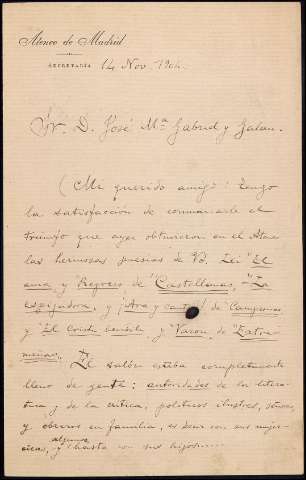 Ateneo de Madrid
SECRETARÍA 14 Nov. 1904.
Sr. D. José Mª Gabriel y Galan.
¡Mi querido amigo! Tengo
la satisfacción de comunicarle el
triunfo que ayer obtuvieron en el Ateneo
las hermosas poesías de Vd. Leí "El
ama y Regreso" de Castellanas, "La
espigadora, y ¡Ara y canta! de Campesinas
y "El Cristo benditu, y Varon" de Extre-
meñas. El salón estaba completamente
lleno de gente: autoridades de la litera-
tura y de la crítica, políticos ilustres, señoras,
y obreros en familia, es decir con sus muje-
algunos
cicas, y hasta con sus hijos.....